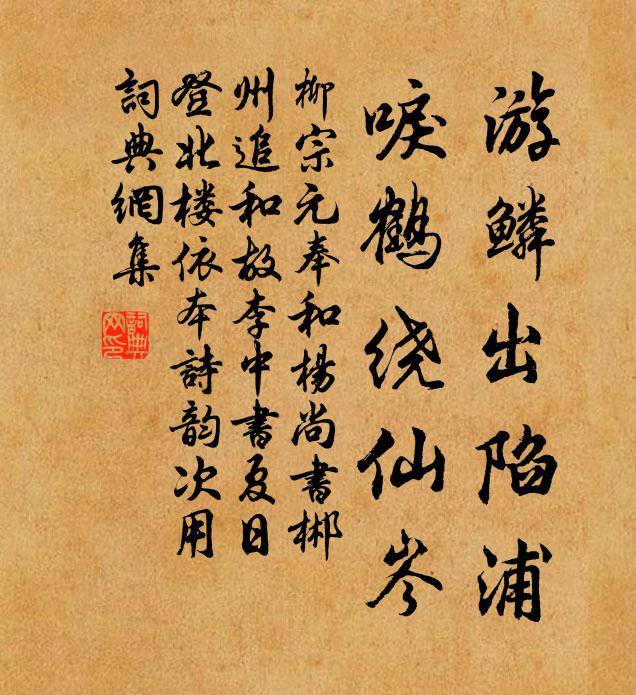 游鳞出陷浦
唳鹤绕仙岑
柳宗元奉和楊尚書郴
州追和故李中書夏日
登北楼依本詩韵次用
詞典網集
詞典網印